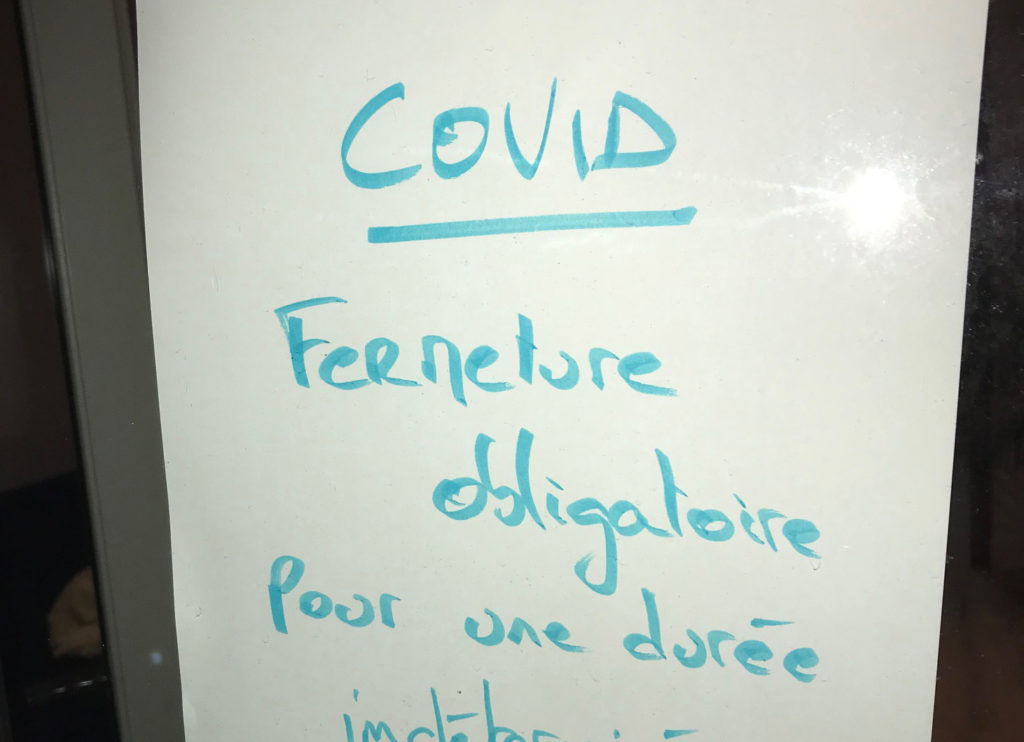 COVID
Fermeture
obligatoire
Pour une durée